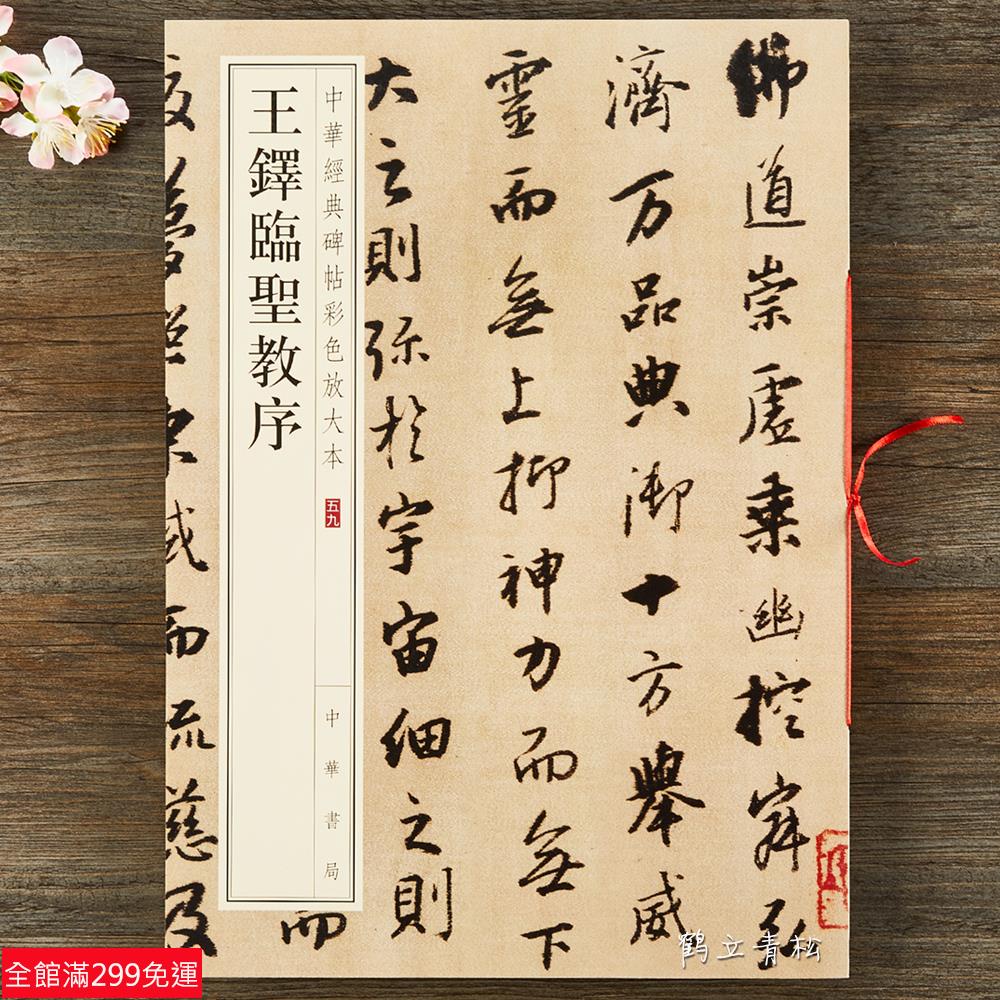 中華經典碑帖彩色放大本
五九
中華書局
王鐸臨聖教序
佛道崇虛乘幽控寂弘
濟万品典御十方舉威
靈而無上抑神力而無下
大之則弥於宇宙細之則
而
而流慈及
鹤立青松
全館滿299免運